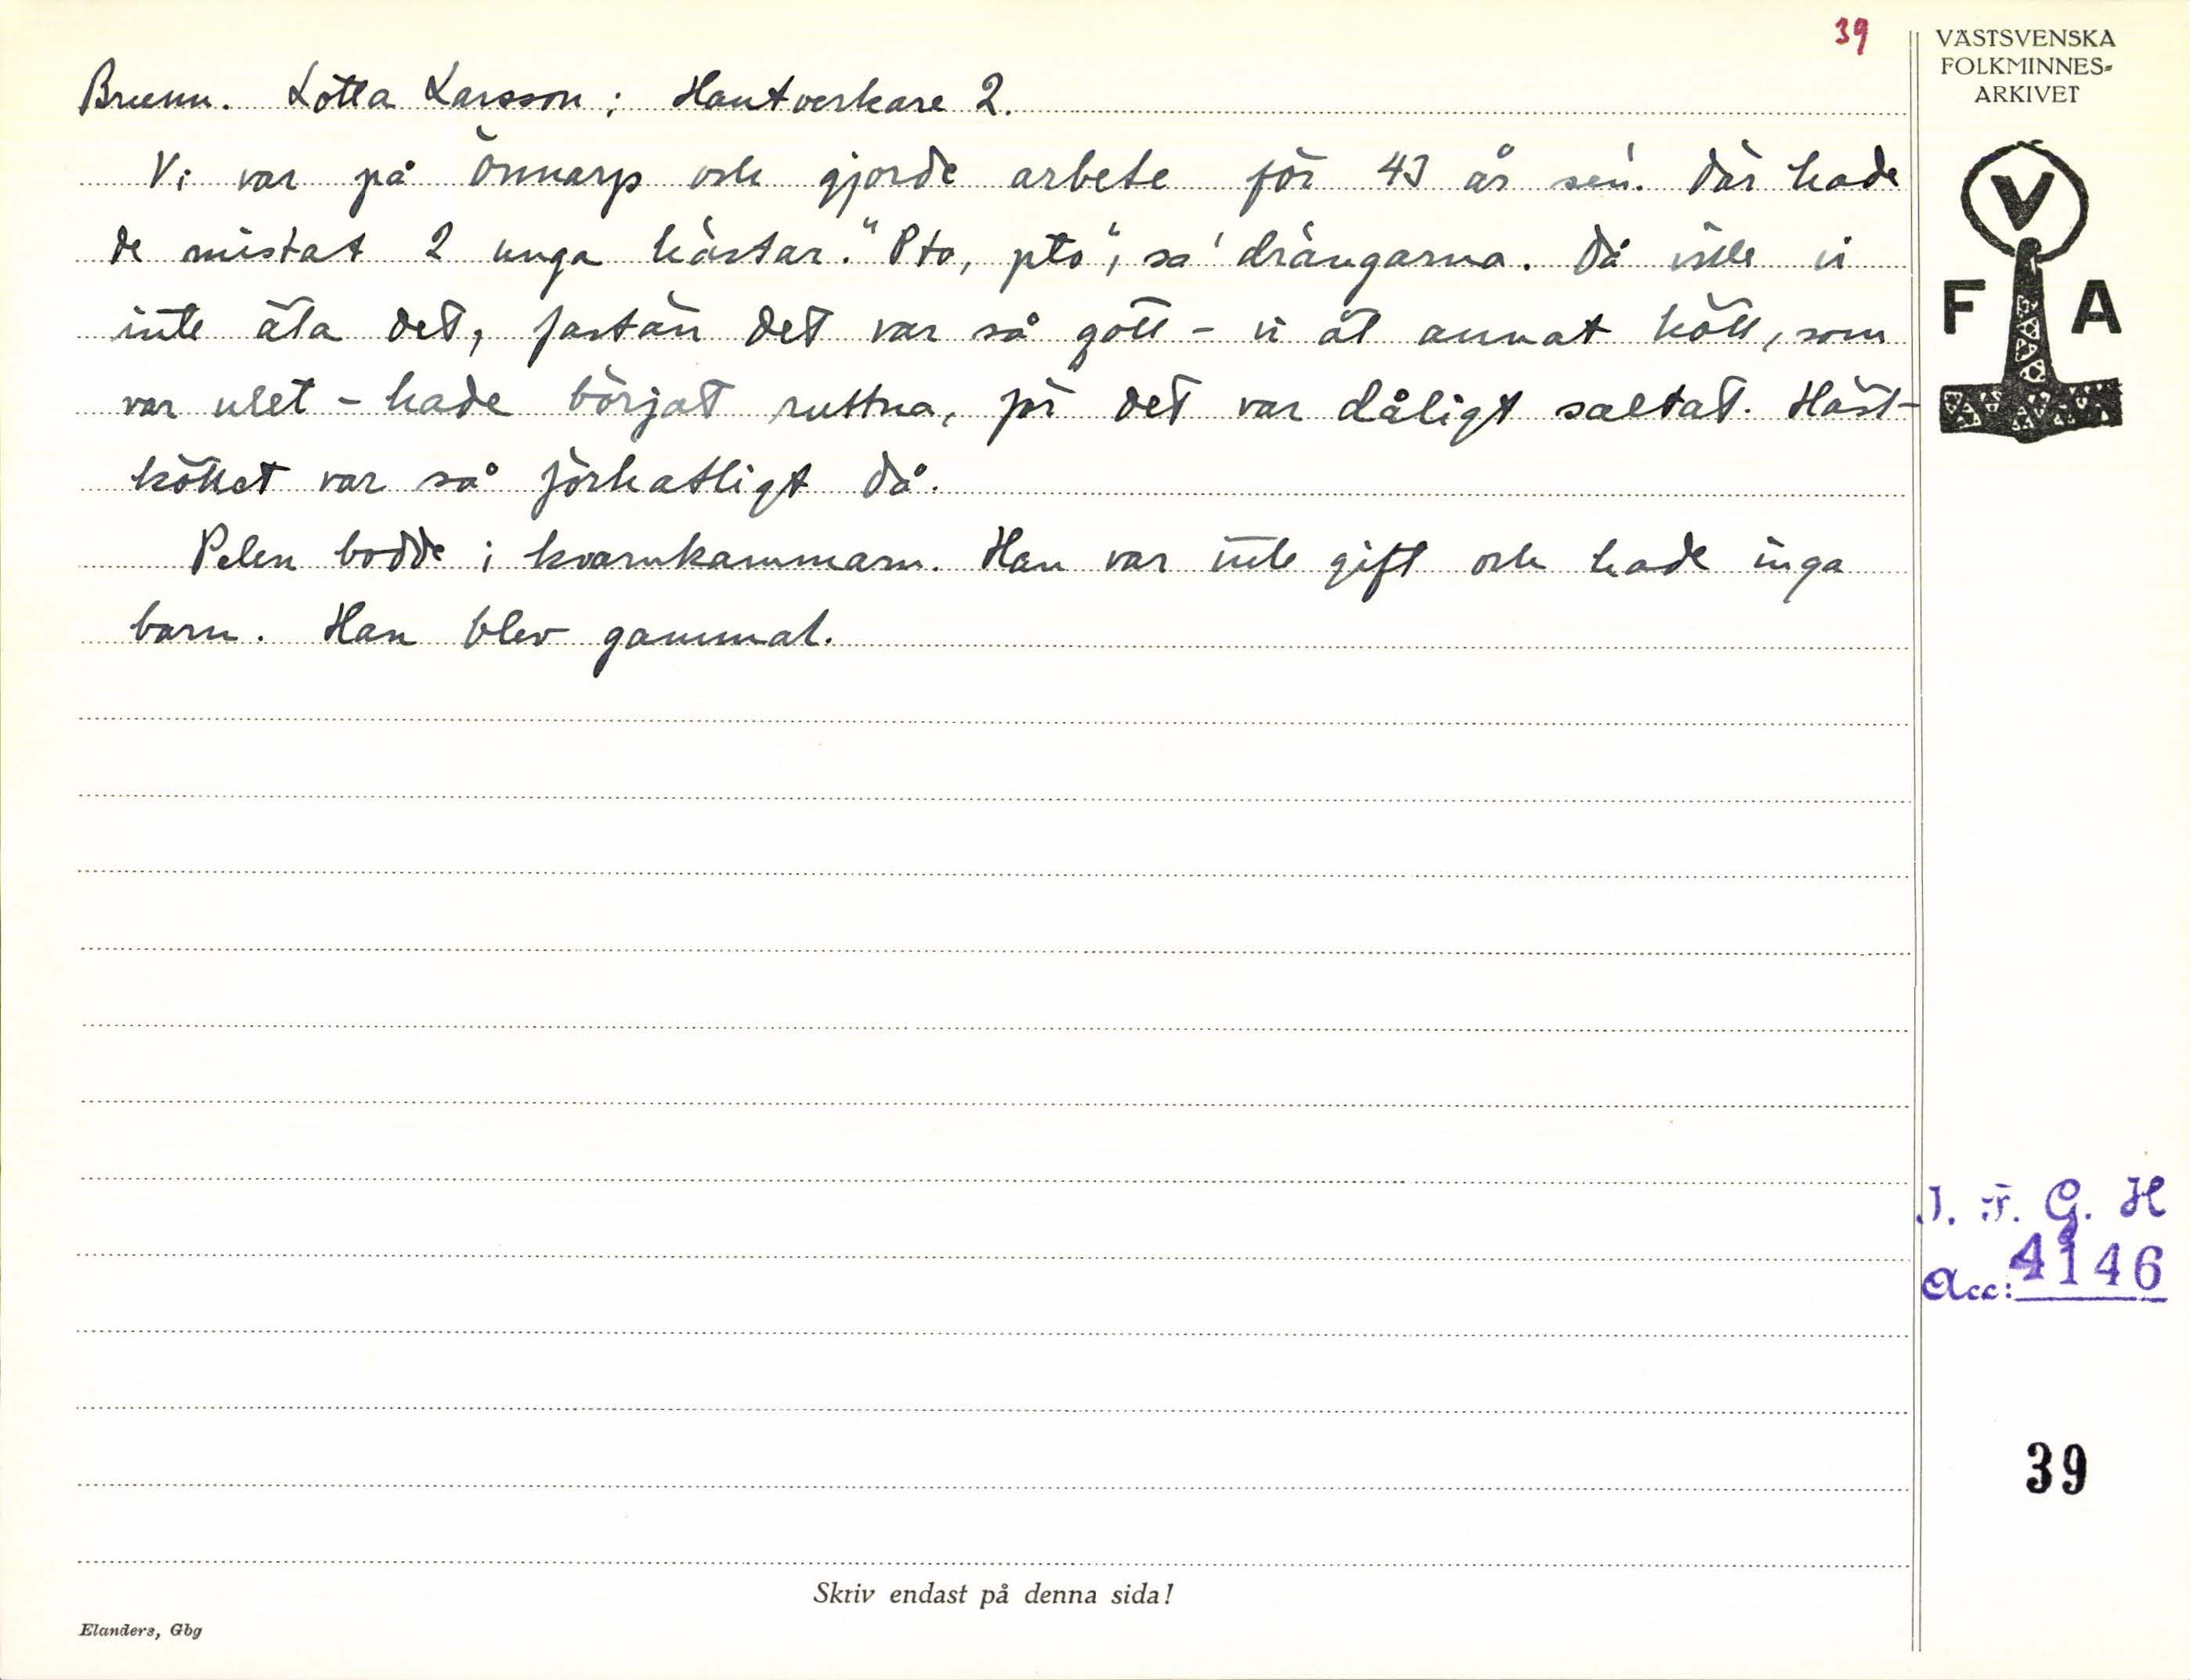 39
VÄSTSVENSKA
FOLKMINNES-
ARKIVET
Brunn. Lotta Larsson: Hantverkare 2.
Vi var på Önnarp och gjorde arbete för 43 år sen. Där hade
de mistat 2 unga hästar. "Pto, pto", sa' drängarna. Då ville vi
inte äta det, fastän det var så gott - vi åt annat kött, som
var uset - hade börjat ruttna, för det var dåligt saltat. Häst-
köttet var så förhatligt då.
Pelen bodde i kvarnkammarn. Han var inte gift och hade inga
barn. Han blev gammal.
V
F A
I. F. G. H
Acc: 4146
39
Skriv endast på denna sida!
Elanders, Gbg